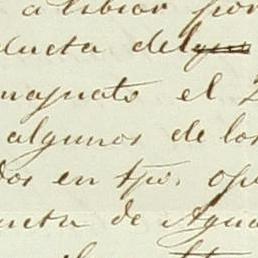 a librar por
ducta del
najuato el 2
algunos de los
dos en tpo. opo
ucta de Agua